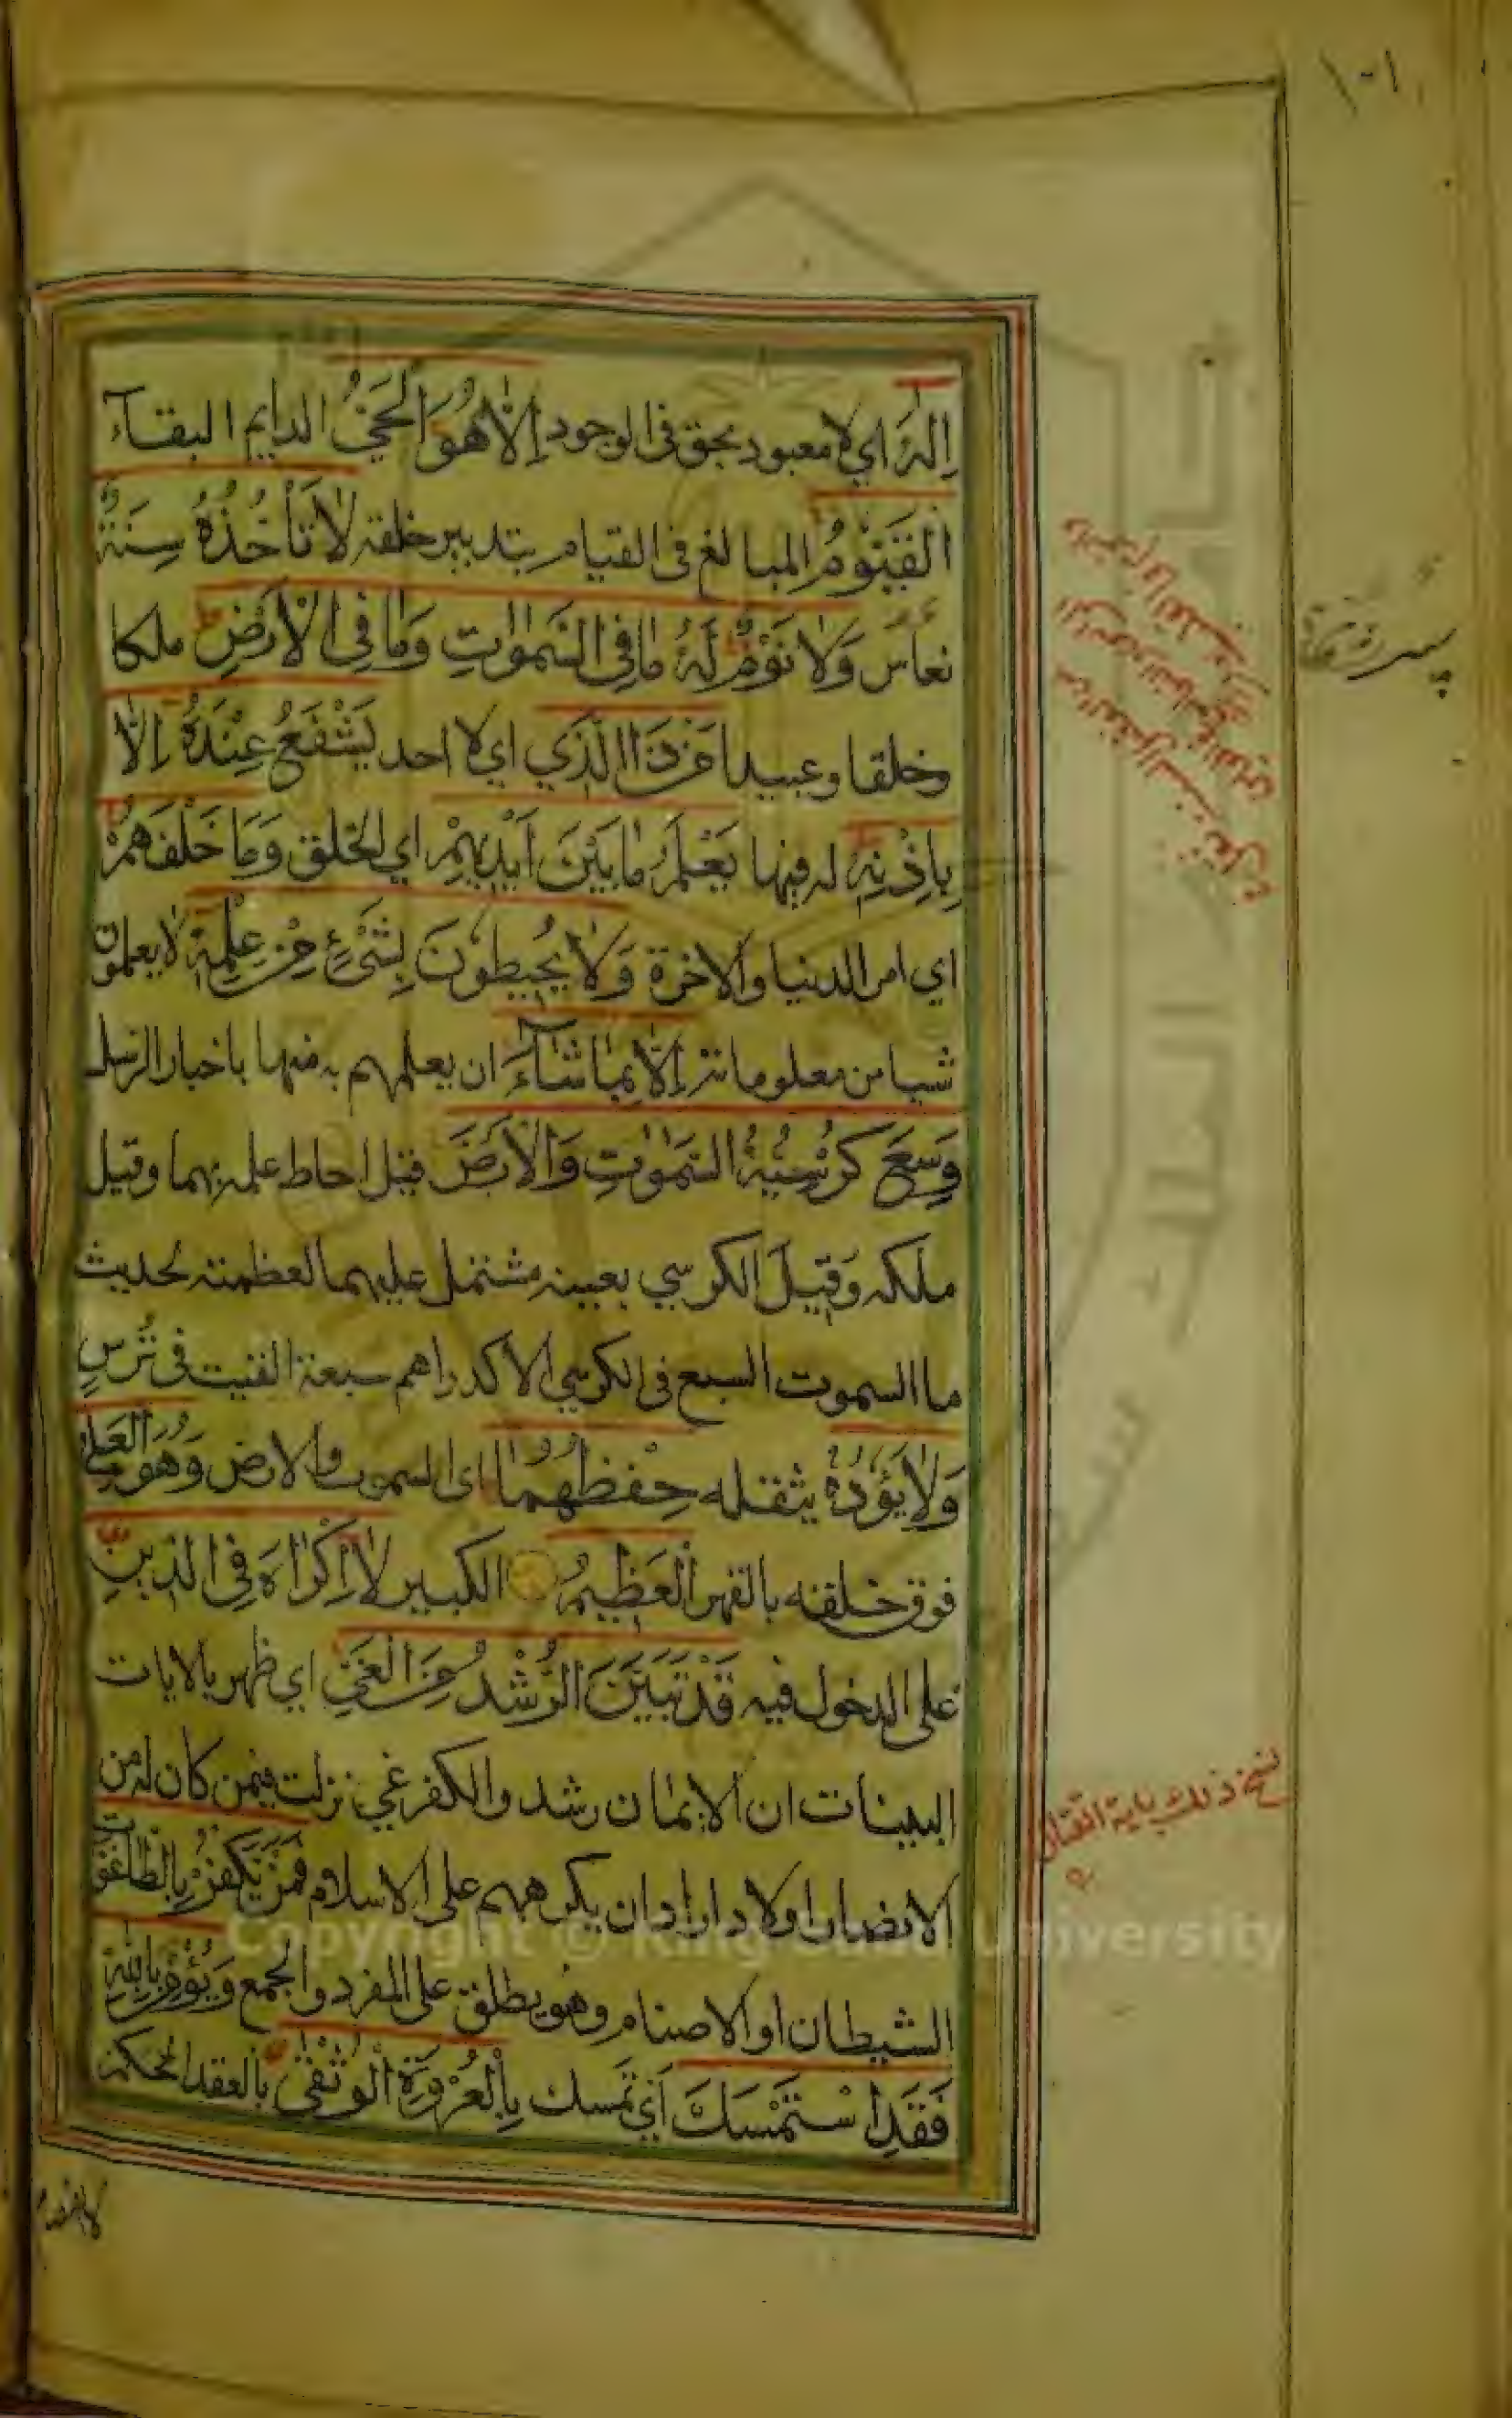 ١٠١
اِلٰهَ اي لا معبود بحق فى الوجود اِلَّا هُوَ اَلْحَيُّ الدايم البقآء
اَلْقَيُّوْمُ المبالغ فى القيام بتدبير خلقه لَا تَأْخُذُهٗ سِنَةٌ
نعاس وَلَا نَوْمٌ لَهٗ مَا فِي السَّمٰوٰتِ وَمَا فِي الْاَرْضِ ملكا
وخلقا وعبيدا مَنْ ذَا الَّذِي اي لا احد يَشْفَعُ عِنْدَهٗ اِلَّا
بِاِذْنِهٖ له فيها يَعْلَمُ مَا بَيْنَ اَيْدِيْهِمْ اي الخلق وَمَا خَلْفَهُمْ
اي امر الدنيا والاخرة وَلَا يُحِيطُوْنَ بِشَيْءٍ مِنْ عِلْمِهٖ لا يعلمون
شيا من معلوماته اِلَّا بِمَا شَآءَ ان يعلمهم به منها باخبار الرسل
وَسِعَ كُرْسِيُّهُ السَّمٰوٰتِ وَالْاَرْضَ قيل احاط علمه بهما وقيل
ملكه وَقيلَ الكرسي بعينه مشتمل عليهما لعظمته لحديث
ما السموت السبع فى الكرسي الا كدراهم سبعة القيت فى تُرْسٍ
وَلَا يَؤُدُهٗ يثقله حِفْظُهُمَا اى السموت والارض وَهُوَ الْعَلِيُّ
فوق خلقه بالقهر الْعَظِيمُ الكبير لَا اِكْرَاهَ فِي الدِّيْنِ
على الدخول فيه قَدْ تَبَيَّنَ الرُّشْدُ مِنَ الْغَيِّ اي ظهر بالايات
البينات ان الايمان رشد والكفر غي نزلت فيمن كان له من
الانصار اولاد اراد ان يكرههم على الاسلام فَمَنْ يَكْفُرْ بِالطَّاغُوْتِ
الشيطان او الاصنام وهو يطلق على المفرد والجمع وَيُؤْمِنْ بِاللّٰهِ
فَقَدِ اسْتَمْسَكَ اَيْ تمسك بِالْعُرْوَةِ الْوُثْقٰى بالعقد المحكم
نسخ ذلك باية القتال
لا انفصام
Copyright © King Saud University